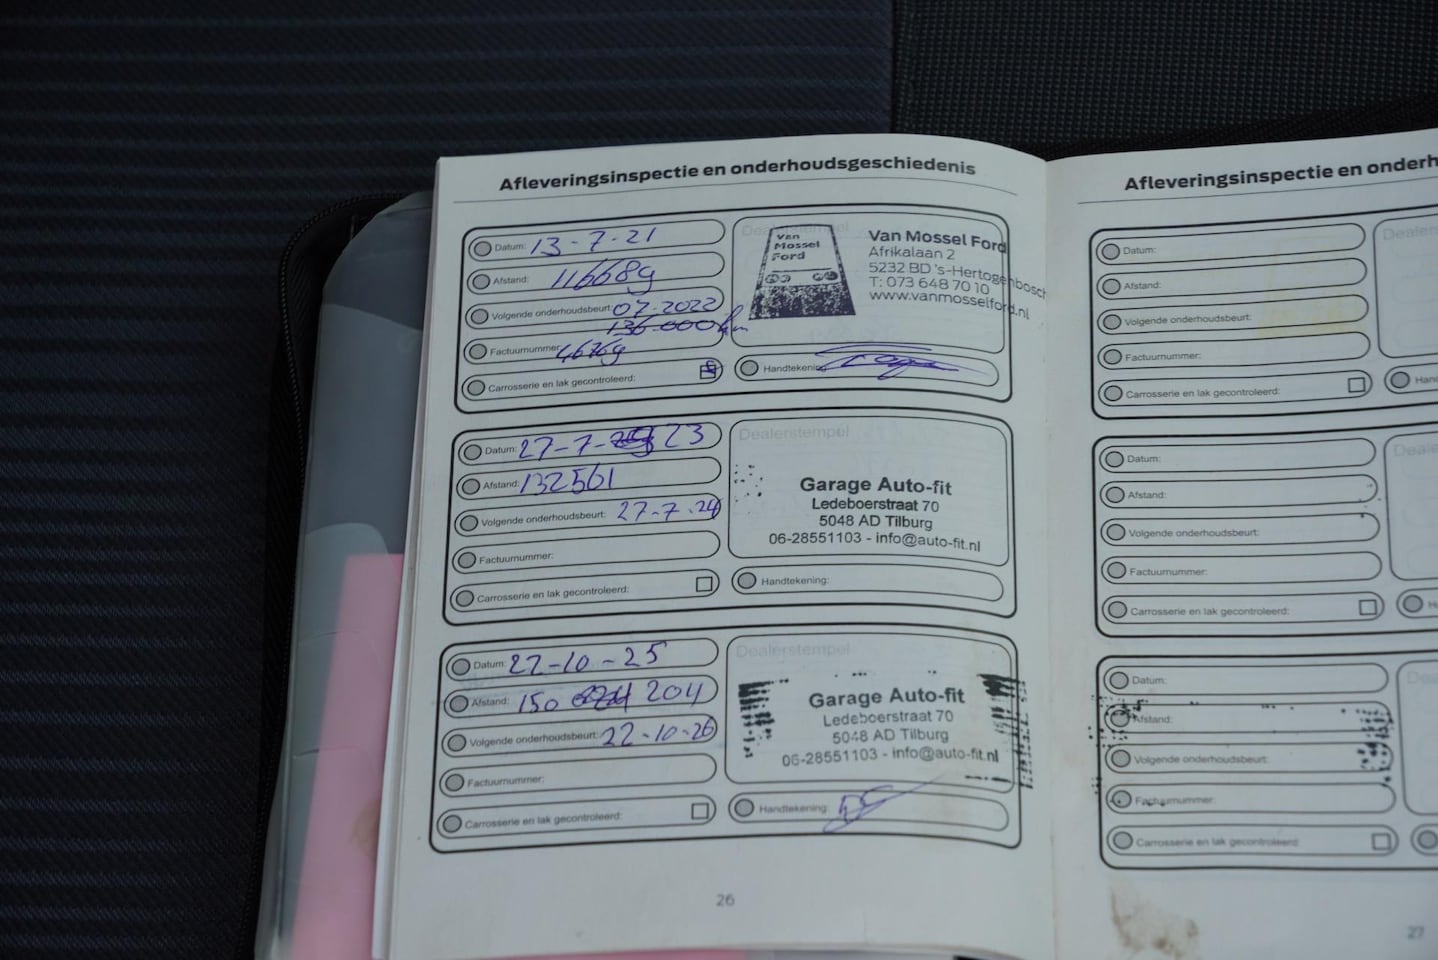 Afleveringsinspectie en onderhoudsgeschiedenis
Datum: 13-7-21
Afstand: 116689
Volgende onderhoudsbeurt: 07-2022
136.000 km
Factuurnummer: 46769
Carrosserie en lak gecontroleerd:
Dealerstempel
Van
Mossel
Ford
Van Mossel Ford
Afrikalaan 2
5232 BD 's-Hertogenbosch
T: 073 648 70 10
www.vanmosselford.nl
Handtekening:
Datum: 27-7-23
Afstand: 132561
Volgende onderhoudsbeurt: 27-7-24
Factuurnummer:
Carrosserie en lak gecontroleerd:
Dealerstempel
Garage Auto-fit
Ledeboerstraat 70
5048 AD Tilburg
06-28551103 - info@auto-fit.nl
Handtekening:
Datum: 22-10-25
Afstand: 150 204
Volgende onderhoudsbeurt: 22-10-26
Factuurnummer:
Carrosserie en lak gecontroleerd:
Dealerstempel
Garage Auto-fit
Ledeboerstraat 70
5048 AD Tilburg
06-28551103 - info@auto-fit.nl
Handtekening:
26
Afleveringsinspectie en onderh
Datum:
Afstand:
Volgende onderhoudsbeurt:
Factuurnummer:
Carrosserie en lak gecontroleerd:
Dealerste
Han
Datum:
Afstand:
Volgende onderhoudsbeurt:
Factuurnummer:
Carrosserie en lak gecontroleerd:
Deale
H
Datum:
Afstand:
Volgende onderhoudsbeurt:
Factuurnummer:
Carrosserie en lak gecontroleerd:
Dea
27